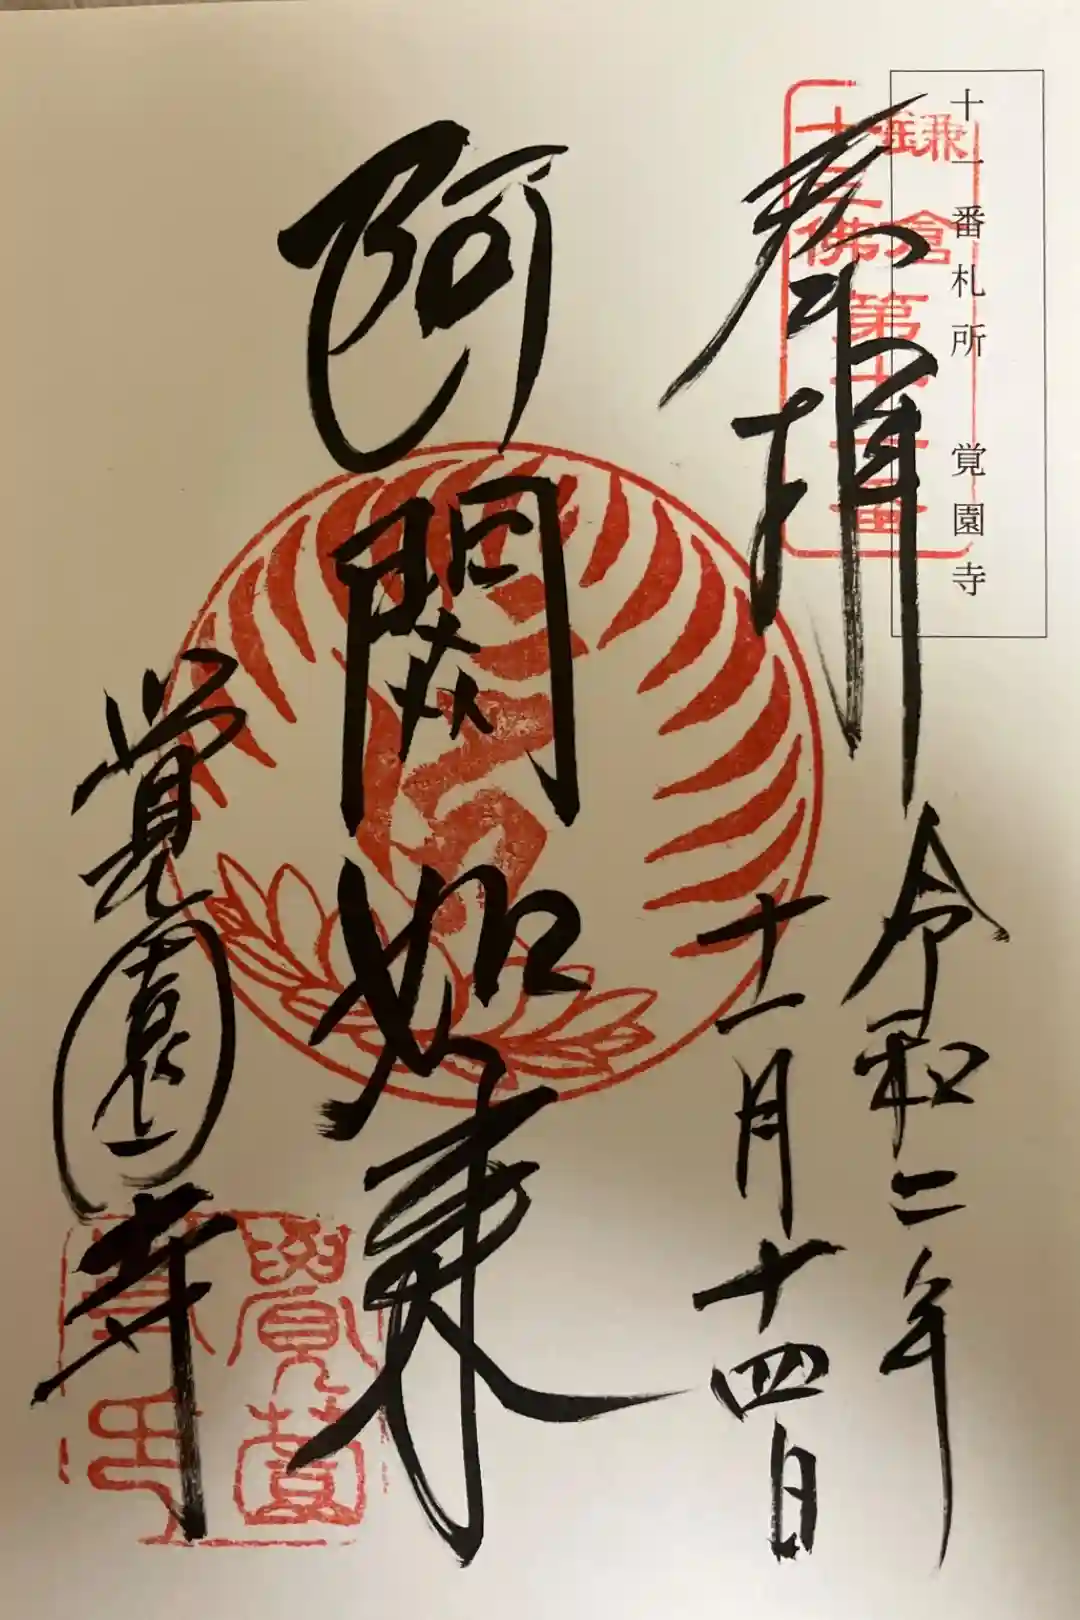 十一番札所 覚園寺
鎌倉
十三佛
第十一番
奉拝
令和二年
十一月十四日
阿閦如来
覚園寺
覺園
寺印